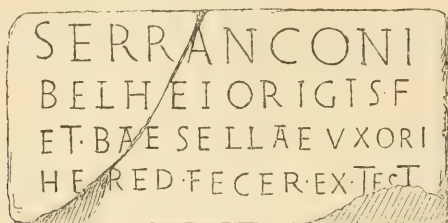 SERRANCONI
BELHEIORIGIS·F
ET·BAESELLAE VXORI
HERED·FECER·EX·TEST